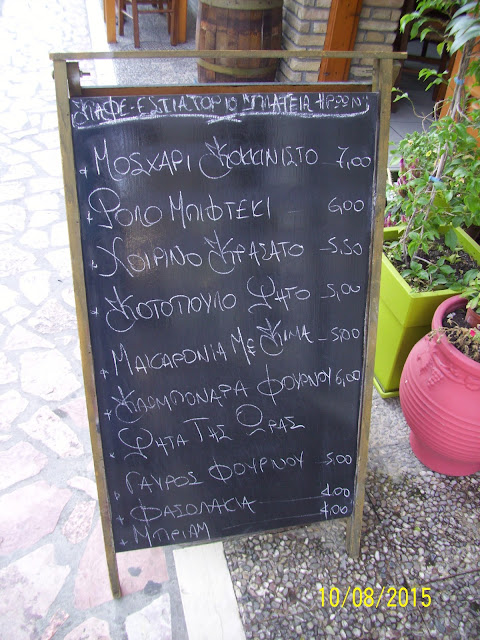 ΚΑΦΕ-ΕΣΤΙΑΤΟΡΙΟ ΠΛΑΤΕΙΑ ΗΡΩΩΝ
ΜΟSΧΑΡΙ ΚΟΚΚΙΝΙSΤΟ 7,00
ΡΟΛΟ ΜΠΙΦΤΕΚΙ 6,00
ΧΟΙΡΙΝΟ ΚΡΑSΑΤΟ 5,50
ΚΟΤΟΠΟΥΛΟ ΨΗΤΟ 5,00
ΜΑΚΑΡΟΝΙΑ ΜΕ ΚΙΜΑ 5,00
ΚΛΕΜΠΟΝΑΡΑ ΦΟΥΡΝΟΥ 6,00
ΨΗΤΑ ΤΗΣ ΩΡΑΣ
ΓΑΥΡΟΣ ΦΟΥΡΝΟΥ 5,00
ΦΑΣΟΛΑΚΙΑ 4,00
ΜΠΡΙΑΜ 4,00
10/08/2015